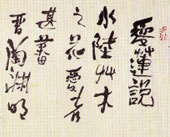 愛蓮説
水陸艸木
之花愛者
甚蕃
晋陶淵明